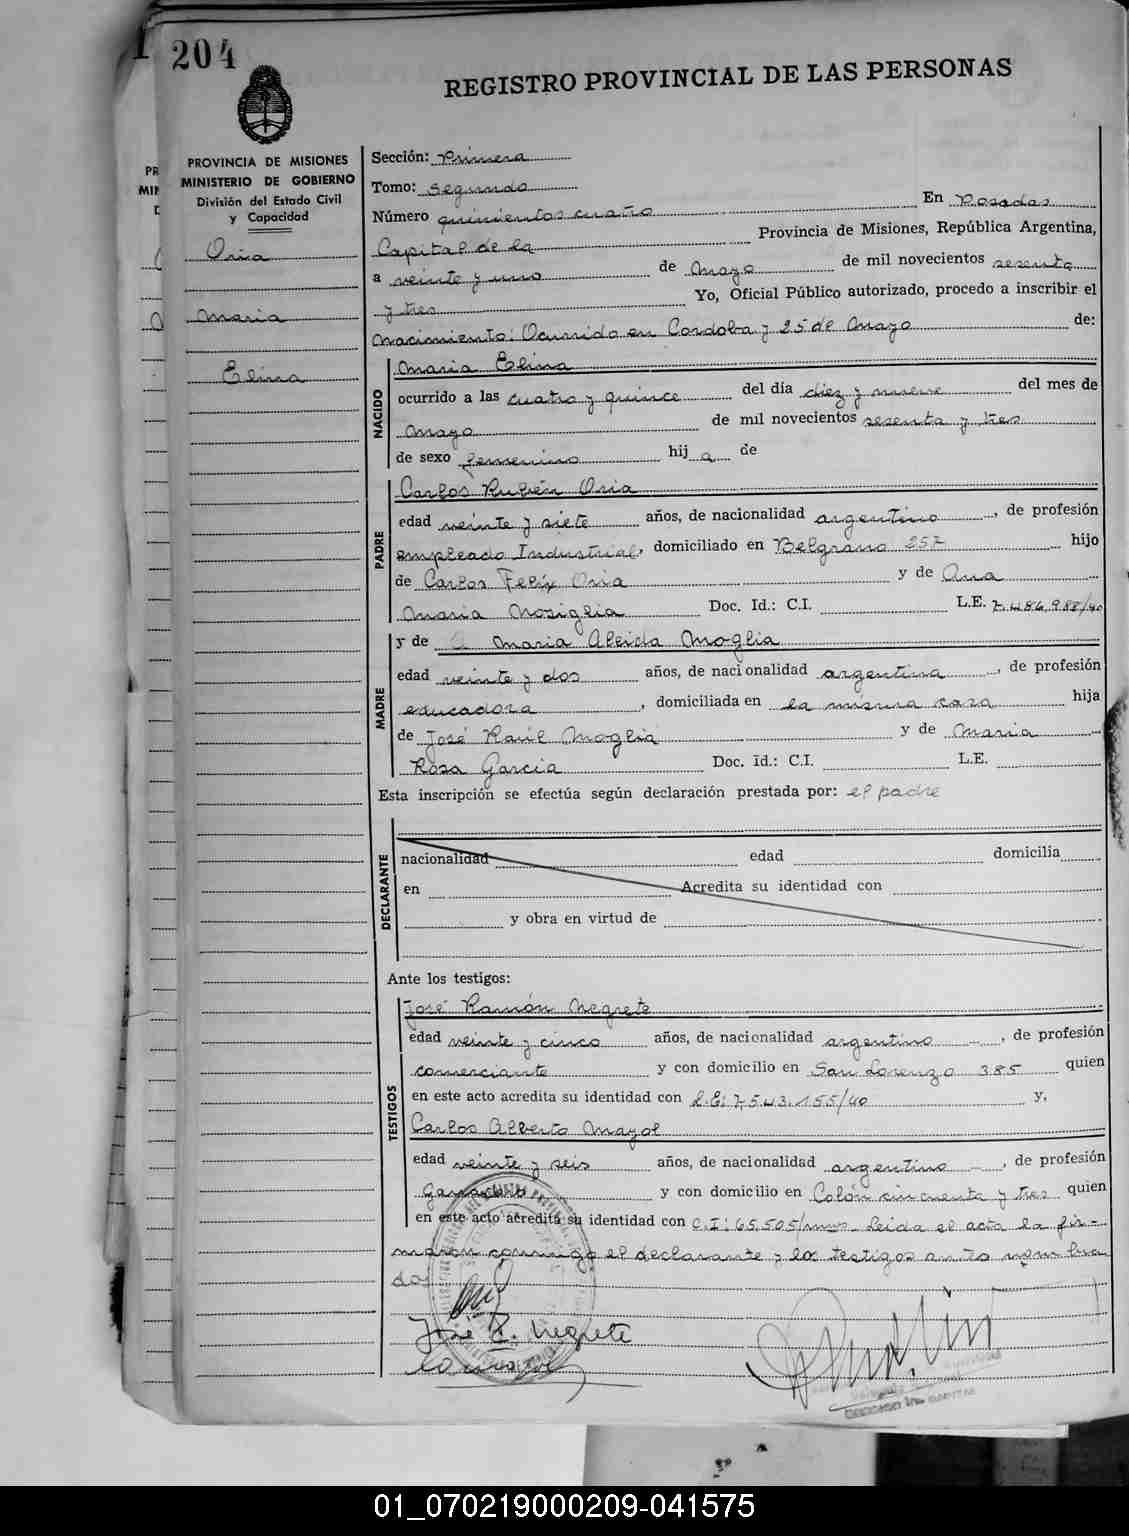 204
REGISTRO PROVINCIAL DE LAS PERSONAS
PROVINCIA DE MISIONES
MINISTERIO DE GOBIERNO
División del Estado Civil
y Capacidad
Oria
Maria
Elina
Sección: Primera
Tomo: Segundo
Número quinientos cuatro En Posadas
Capital de la Provincia de Misiones, República Argentina,
a veinte y uno de Mayo de mil novecientos sesenta
y tres Yo, Oficial Público autorizado, procedo a inscribir el
Nacimiento: Ocurrido en Cordoba y 25 de Mayo de:
NACIDO
Maria Elina
ocurrido a las cuatro y quince del día diez y nueve del mes de
Mayo de mil novecientos sesenta y tres
de sexo femenino hij a de
PADRE
Carlos Rubén Oria
edad veinte y siete años, de nacionalidad argentino, de profesión
empleado Industrial, domiciliado en Belgrano 257 hijo
de Carlos Felix Oria y de Ana
Maria Nosiglia Doc. Id.: C.I. L.E. 7.486.988/40
MADRE
y de Maria Aleida Moglia
edad veinte y dos años, de nacionalidad argentina, de profesión
educadora, domiciliada en la misma casa hija
de José Raúl Moglia y de Maria
Rosa Garcia Doc. Id.: C.I. L.E.
Esta inscripción se efectúa según declaración prestada por: el padre
DECLARANTE
nacionalidad edad domicilia
en Acredita su identidad con
y obra en virtud de
Ante los testigos:
TESTIGOS
José Ramón Negrete
edad veinte y cinco años, de nacionalidad argentino, de profesión
comerciante y con domicilio en San Lorenzo 385 quien
en este acto acredita su identidad con L.E: 7.543.155/40 y,
Carlos Alberto Mayol
edad veinte y seis años, de nacionalidad argentino, de profesión
y con domicilio en Colón cincuenta y tres quien
en este acto acredita su identidad con C.I: 65.505/mnes. Leida el acta la fir-
maron conmigo el declarante y los testigos antes nombra
dos
José R. Negrete
01_070219000209-041575